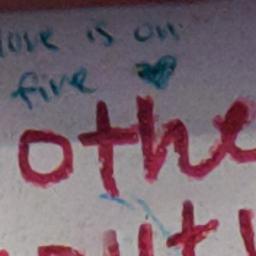 love is on
fire
othe